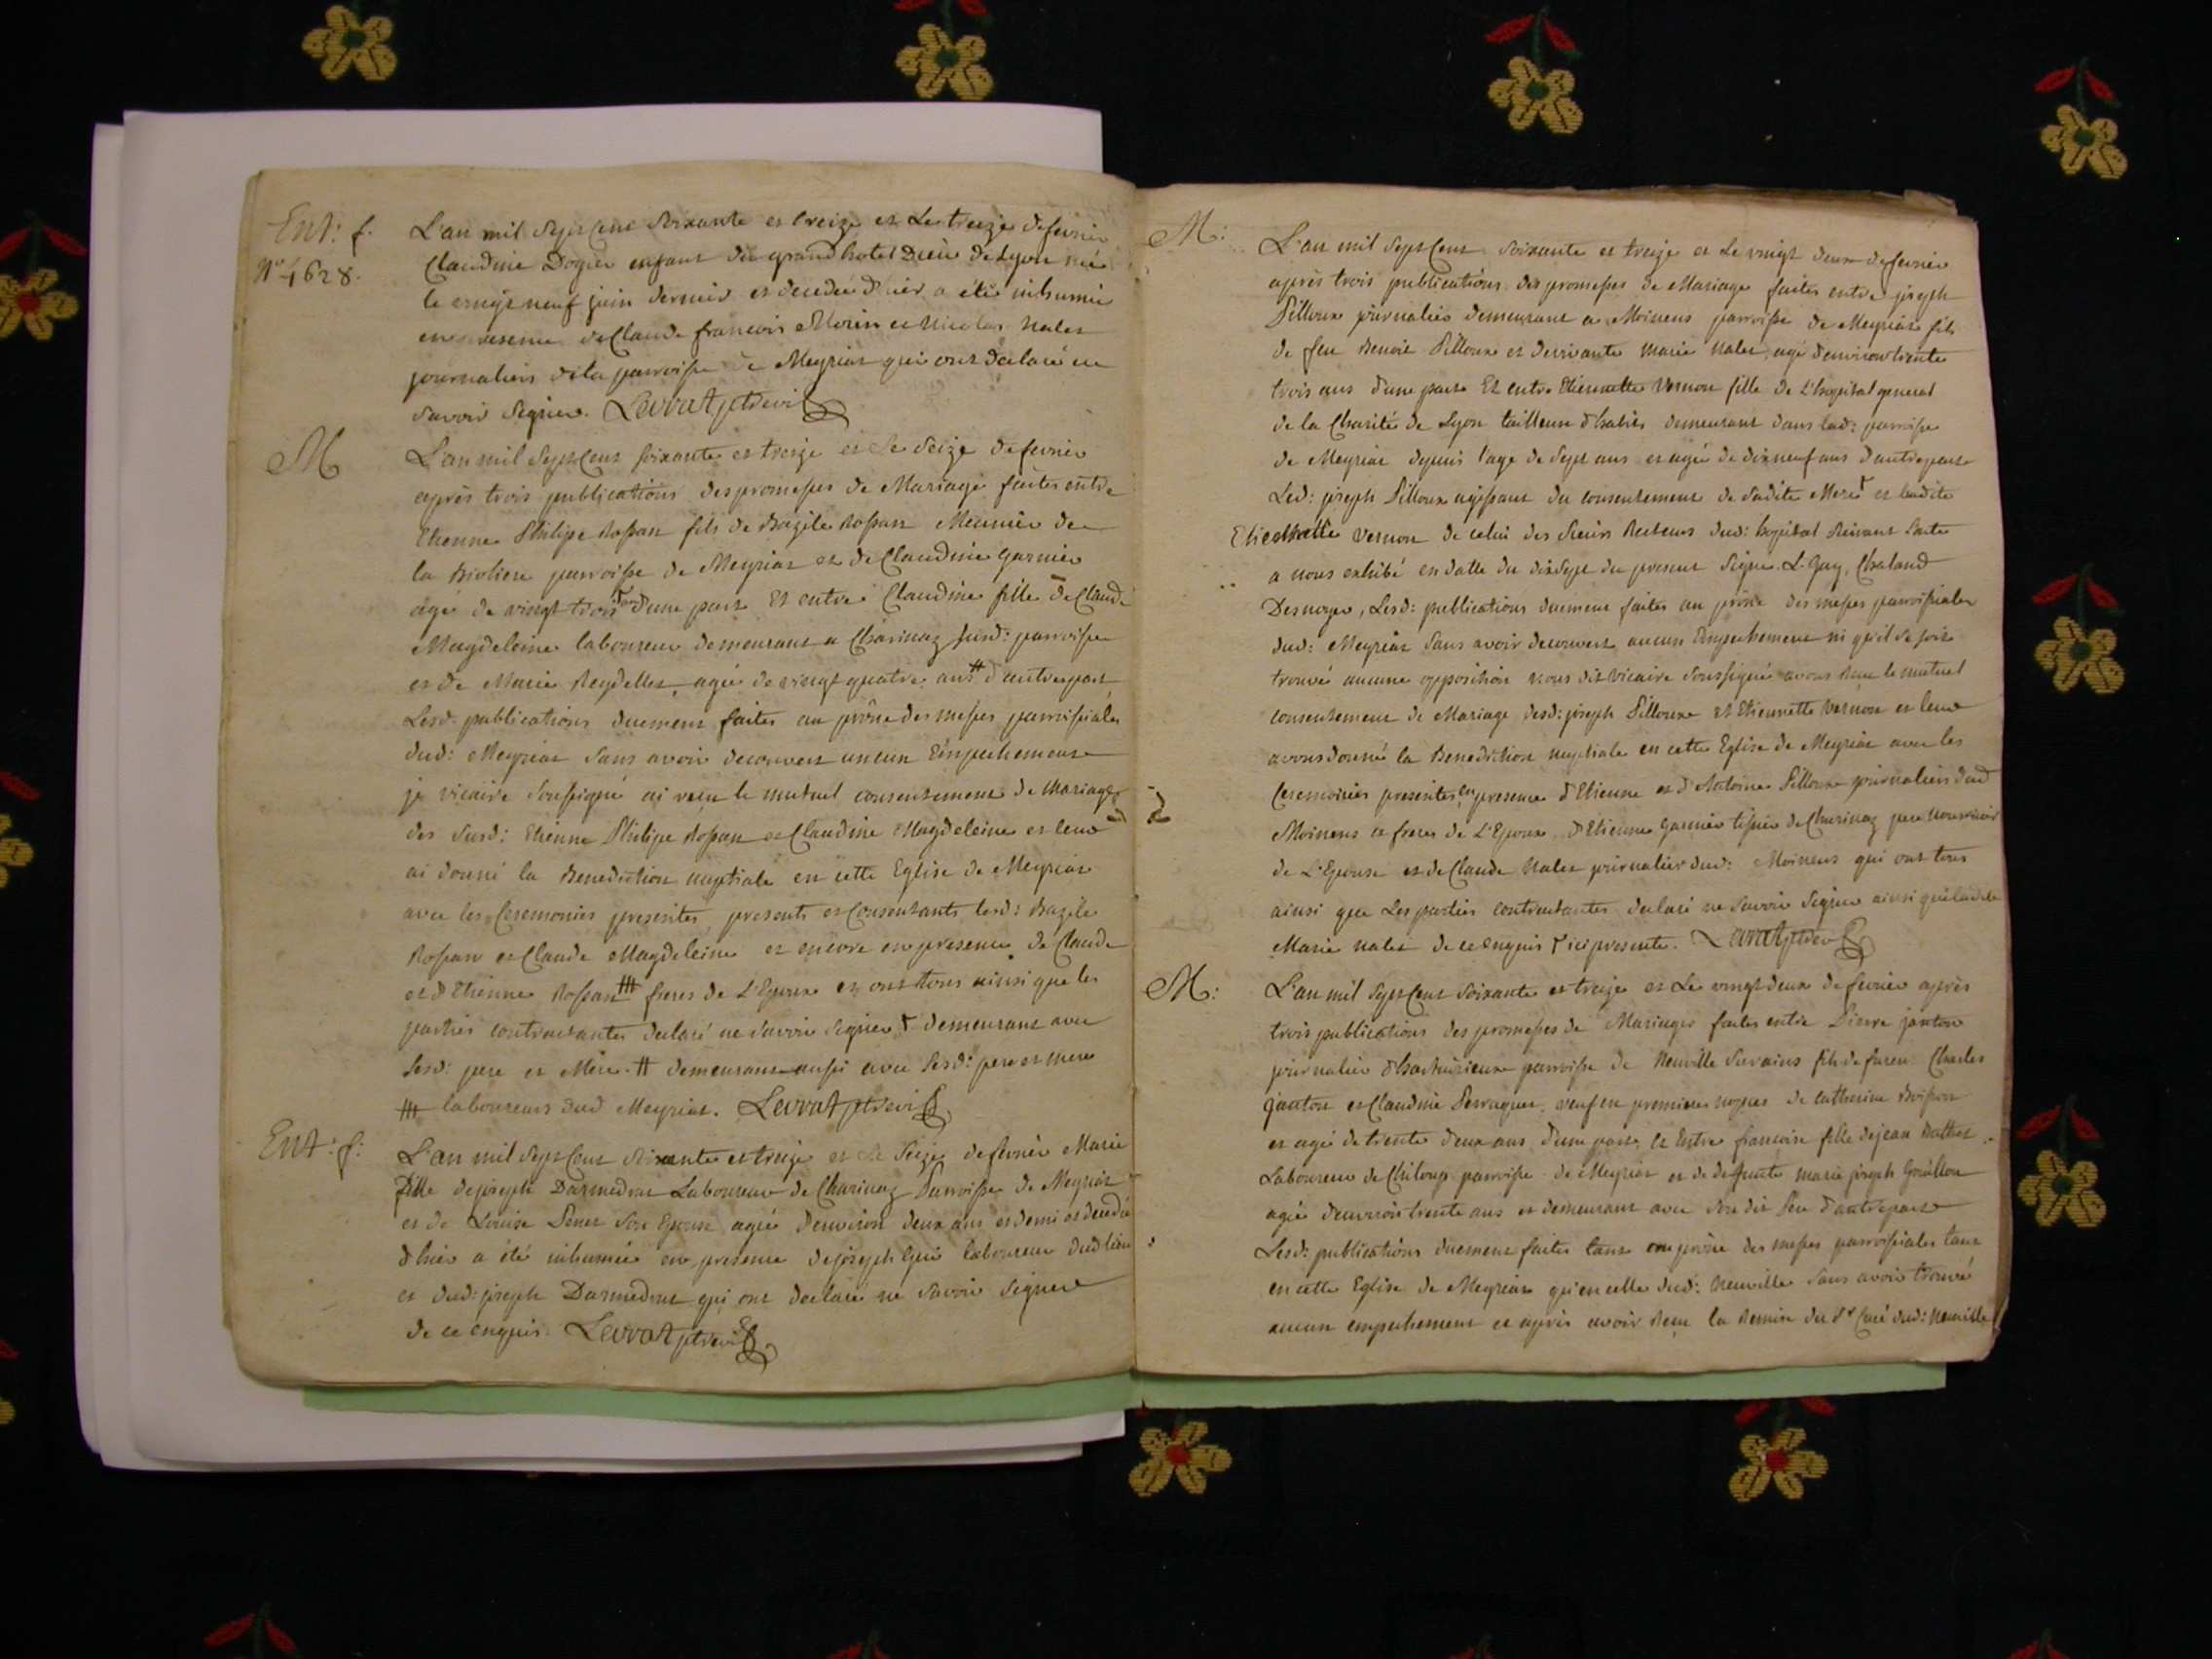 Ent: f.
N° 4628.
L'an mil Sept Cent Soixante et treize et Le treize defevrier
Claudine Dogier enfant du grand hotel Dieu de Lyon née
le vingt neuf juin dernier et decedée d'hier a été inhumée
en presence de Claude francois Morin et Nicolas Nalet
journaliers de la parroisse de Meyriat qui ont déclaré ne
Savoir Signer. Levrat ptre vic
M
L'an mil Sept Cent Soixante et treize et Le Seize defevrier
après trois publications des promesses de Mariage faites entre
Etienne Philipe Rossan fils de Bazile Rossan Meunier de
la Rioliere parroisse de Meyriat et de Claudine Garnier
agé de vingt trois ans † d'une part Et entre Claudine fille de Claude
Magdeleine laboureur demeurant a Charinaz susd: parroisse
et de Marie Reydellet, agée de vingt quatre ans # d'autre part
Lesd: publications duement faites au prône des messes parroissiales
dud: Meyriat Sans avoir decouvert aucun Empechement
je vicaire Soussigné ai reçu le mutuel consentement de Mariage
des Susd: Etienne Philipe Rossan et Claudine Magdeleine et leur
ai donné la Benediction nuptiale en cette Eglise de Meyriat
avec les Ceremonies prescrites, presents et Consentants lesd: Bazile
Rossan et Claude Magdeleine et encore en presence de Claude
et d'Etienne Rossan ### freres de L'Epoux et ont tous ainsi que les
parties contractantes declaré ne Savoir Signer † demeurant avec
Sesd: pere et Mere. # demeurant aussi avec Sesd: pere et mere
### laboureurs dud Meyriat. Levrat ptre vic
Ent: f:
L'an mil Sept Cent Soixante et treize et Le Seize defevrier Marie
fille de joseph Darmedrut Laboureur de Charinaz Parroisse de Meyriat
et de Louise Penet Son Epouse agée d'environ deux ans et demi et decedée
d'hier a été inhumée en presence de joseph Gui laboureur dud lieu
et dud: joseph Darmedrut qui ont declaré ne Savoir Signer
de ce enquis. Levrat ptre vic
M:
L'an mil Sept Cent Soixante et treize et Le vingt deux defevrier
après trois publications des promesses de Mariage faites entre joseph
Pilloux journalier demeurant a Moinens parroisse de Meyriat fils
de feu Benoit Pilloux et de vivante Marie Nalet, agé d'environ trente
trois ans d'une part Et entre Etiennette Vernon fille de L'hopital general
de la Charité de Lyon tailleuse d'habits demeurant dans lad: parroisse
de Meyriat depuis l'age de Sept ans et agée de dix neuf ans d'autre part
Led: joseph Pilloux agissant du consentement de Sadite Mere † et ladite
Etiennette Vernon de celui des Sieurs Recteurs dud: hopital Suivant l'acte
a nous exhibé en datte du dix Sept du present Signé L. Gay, Chaland
Desnoyer, Lesd: publications duement faites au prône des messes parroissiales
dud: Meyriat Sans avoir decouvert aucun Empechement ni qu'il se soit
trouvé aucune opposition nous dit Vicaire Soussigné avons Reçu le mutuel
consentement de Mariage desd: joseph Pilloux et Etiennette Vernon et leur
avons donné la Benediction nuptiale en cette Eglise de Meyriat avec les
Ceremonies prescrites en presence d'Etienne et d'Antoine Pilloux journaliers dud
Moinens et freres de L'Epoux d'Etienne Garnier tissier de Charinaz pere nourricier
de L'Epouse et de Claude Nalet journalier dud: Moinens qui ont tous
ainsi que Les parties contractantes declaré ne Savoir Signer ainsi que ladite
Marie Nalet de ce enquis † ici presente. Levrat ptre vic
M:
L'an mil Sept Cent Soixante et treize et Le vingt deux de fevrier après
trois publications des promesses de Mariages faites entre Pierre janton
journalier parroisse de Neuville Sur ains fils de furen Charles
janton et Claudine Perraguet, veuf en premieres nopces de Catherine Boisson
et agé de trente deux ans d'une part, Et Entre francoise fille de jean Buthet
Laboureur de Chiloup parroisse de Meyriat et de deffunte Marie joseph Gouillon
agée d'environ trente ans et demeurant avec Son dit Pere d'autre part
Lesd: publications duement faites tant au prône des messes parroissiales tant
en cette Eglise de Meyriat qu'en celle dud: Neuville Sans avoir trouvé
aucun empechement et après avoir Reçu la Remise du Sr Curé dud: Neuville